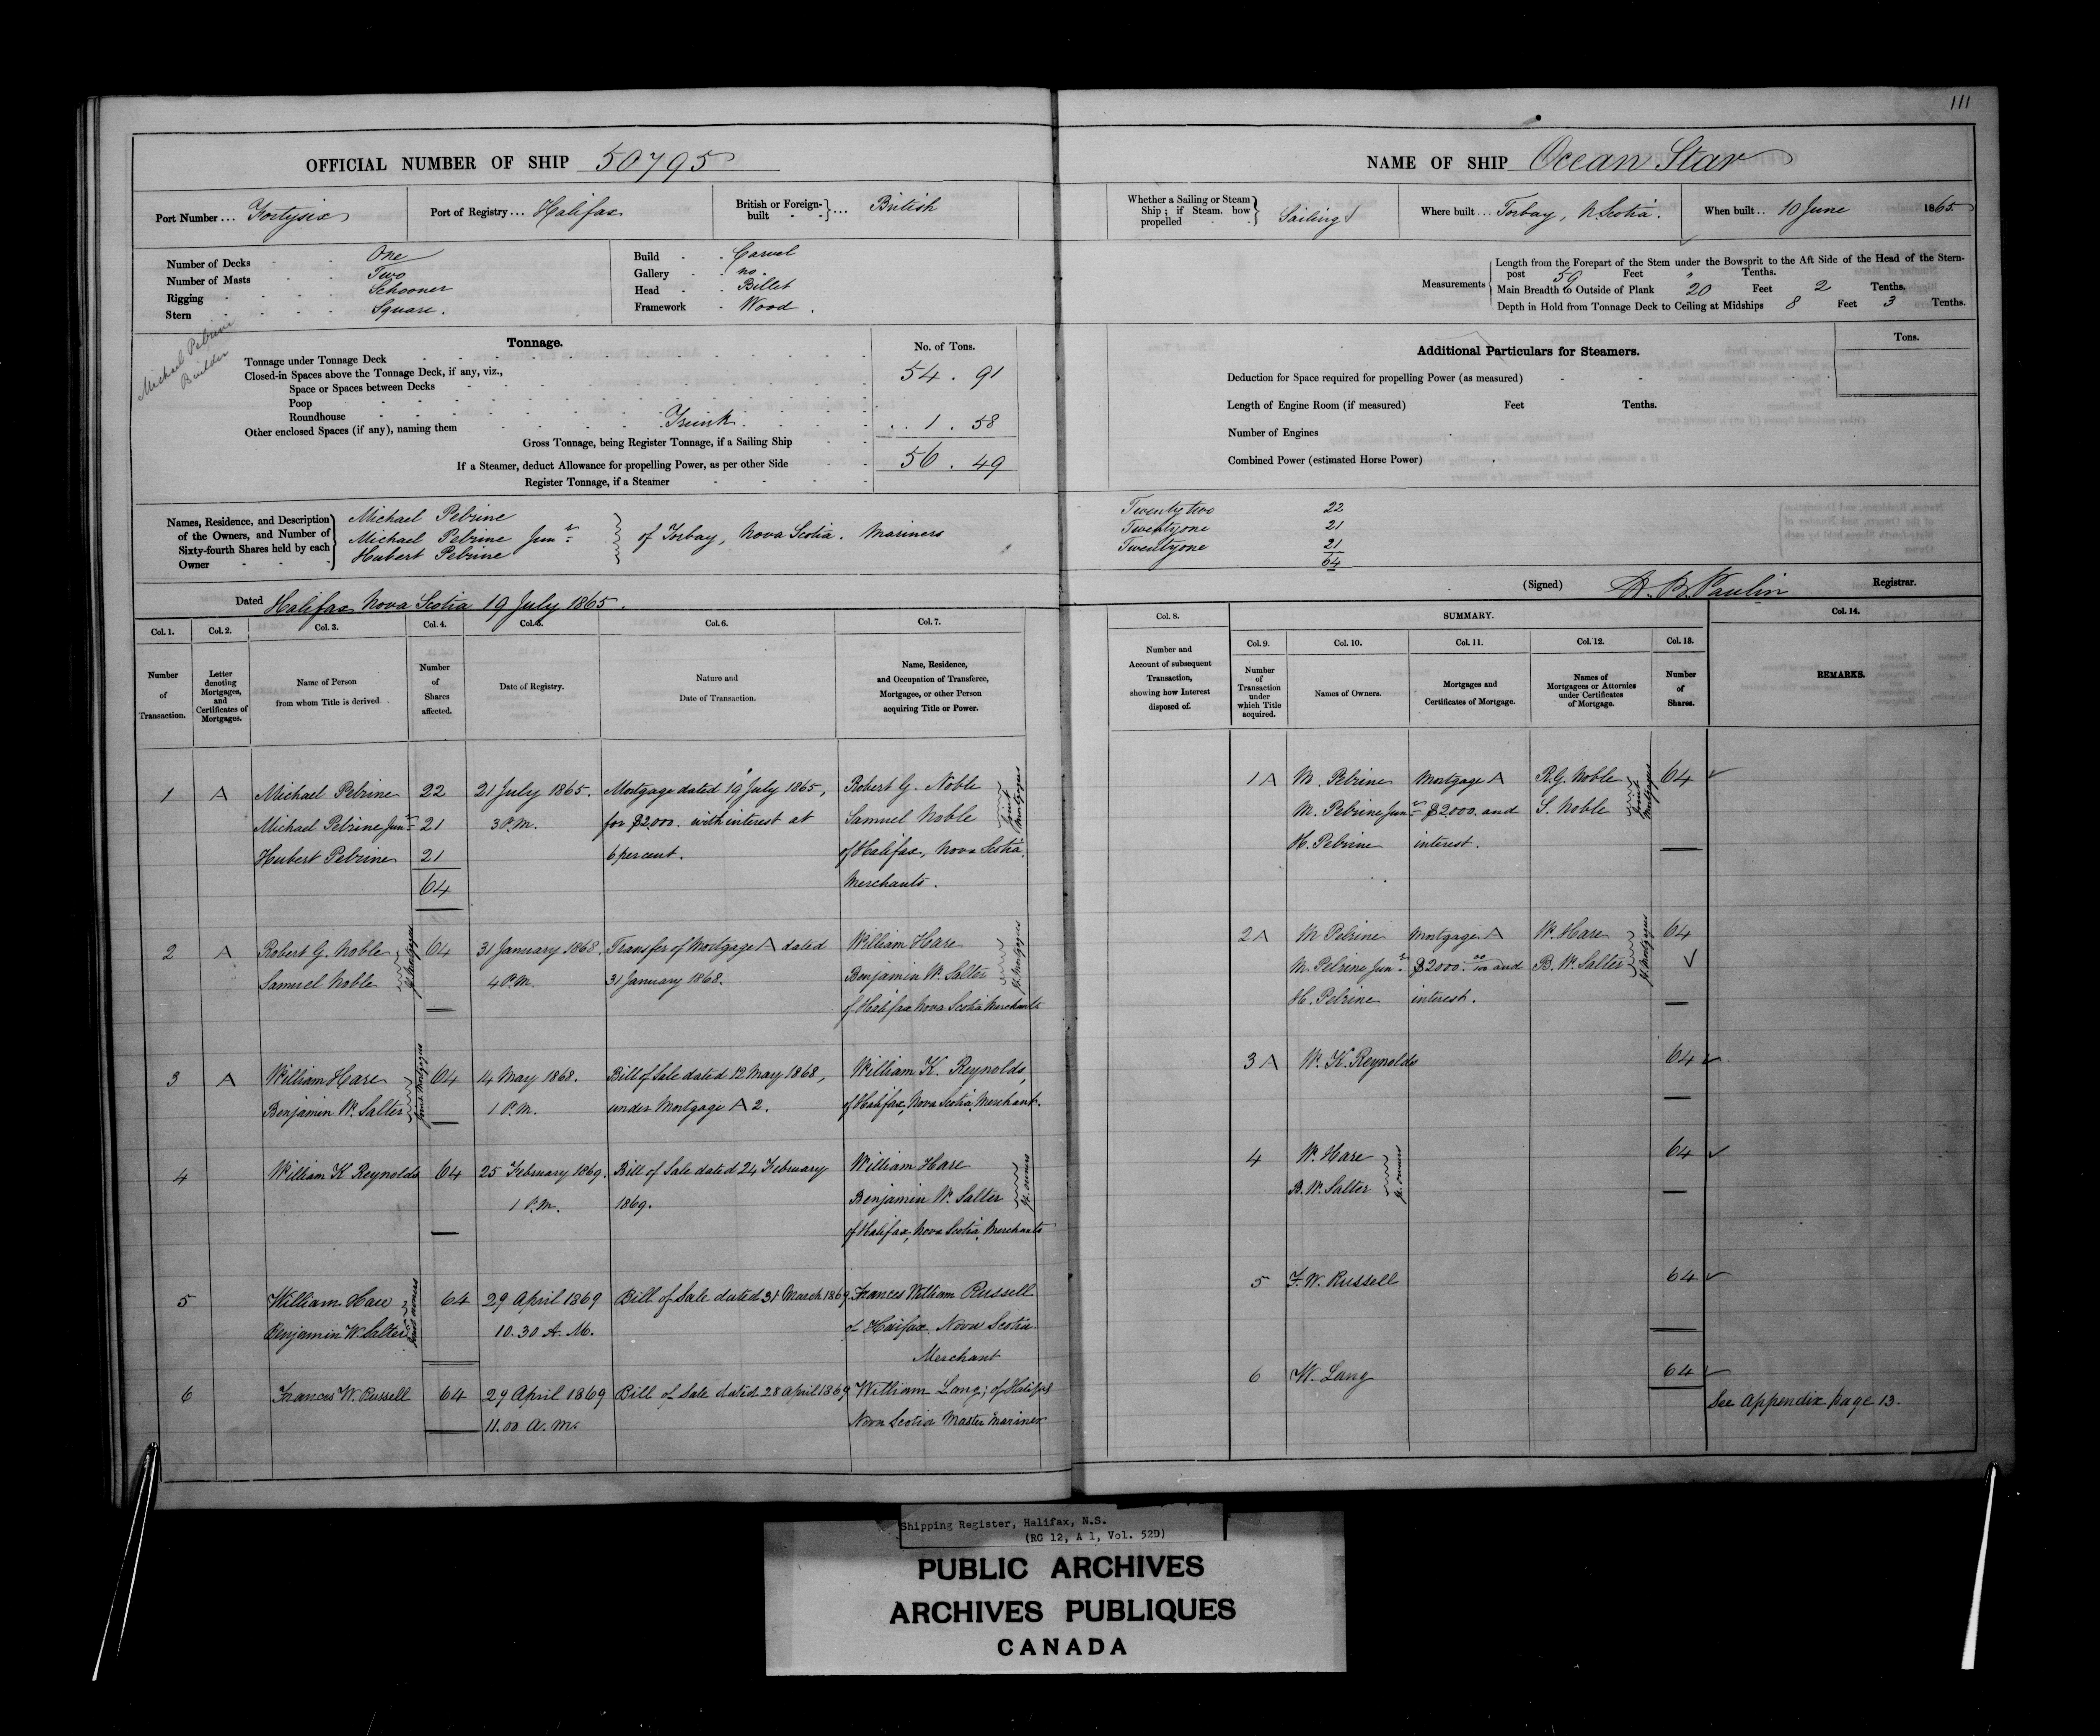 111
OFFICIAL NUMBER OF SHIP 50795
NAME OF SHIP Ocean Star
Port Number ... Fortysix
Port of Registry ... Halifax
British or Foreign-built ... British
Whether a Sailing or Steam Ship ; if Steam. how propelled Sailing
Where built ... Torbay, N Scotia.
When built .. 10 June 1865
Number of Decks One
Number of Masts Two
Rigging Schooner
Stern Square.
Build Carvel
Gallery no.
Head Billet
Framework Wood.
Measurements
Length from the Forepart of the Stem under the Bowsprit to the Aft Side of the Head of the Stern-
post 59 Feet " Tenths.
Main Breadth to Outside of Plank 20 Feet 2 Tenths.
Depth in Hold from Tonnage Deck to Ceiling at Midships 8 Feet 3 Tenths.
Michael Pelrine
Builder
Tonnage.
No. of Tons.
Tonnage under Tonnage Deck 54 . 91
Closed-in Spaces above the Tonnage Deck, if any, viz.,
Space or Spaces between Decks
Poop
Roundhouse
Other enclosed Spaces (if any), naming them Trunk 1 . 58
Gross Tonnage, being Register Tonnage, if a Sailing Ship 56 . 49
If a Steamer, deduct Allowance for propelling Power, as per other Side
Register Tonnage, if a Steamer
Additional Particulars for Steamers.
Tons.
Deduction for Space required for propelling Power (as measured)
Length of Engine Room (if measured) Feet Tenths.
Number of Engines
Combined Power (estimated Horse Power)
Names, Residence, and Description
of the Owners, and Number of
Sixty-fourth Shares held by each
Owner
Michael Pelrine
Michael Pelrine Junr
Hubert Pelrine
of Torbay, Nova Scotia. Mariners
Twenty two 22
Twentyone 21
Twentyone 21
64
Dated Halifax Nova Scotia 19 July 1865.
(Signed) H. B. Paulin Registrar.
Col. 1. Col. 2. Col. 3. Col. 4. Col. 5. Col. 6. Col. 7.
Number of Transaction.
Letter denoting Mortgages, and Certificates of Mortgages.
Name of Person from whom Title is derived
Number of Shares affected.
Date of Registry.
Nature and Date of Transaction.
Name, Residence, and Occupation of Transferee, Mortgagee, or other Person acquiring Title or Power.
Col. 8.
SUMMARY.
Col. 14.
Col. 9. Col. 10. Col. 11. Col. 12. Col. 13.
Number and Account of subsequent Transaction, showing how Interest disposed of.
Number of Transaction under which Title acquired.
Names of Owners.
Mortgages and Certificates of Mortgage.
Names of Mortgagees or Attornies under Certificates of Mortgage.
Number of Shares.
REMARKS.
1 A Michael Pelrine 22 21 July 1865. Mortgage dated 19 July 1865, Robert G. Noble
Michael Pelrine Junr 21 3 P.M. for $2000. with interest at Samuel Noble
Hubert Pelrine 21 6 per cent. of Halifax, Nova Scotia.
64 Merchants.
Joint Mortgagees
2 A Robert G. Noble 64 31 January 1868. Transfer of Mortgage A dated William Hare
Samuel Noble 4 P.M. 31 January 1868. Benjamin W. Salter
of Halifax Nova Scotia Merchants
Jt. Mortgagees
Jt. Mortgagees
3 A William Hare 64 14 May 1868. Bill of Sale dated 12 May 1868, William K. Reynolds,
Benjamin W. Salter 1 P.M. under Mortgage A 2. of Halifax, Nova Scotia, Merchant.
Joint Mortgagees
4 William K Reynolds 64 25 February 1869. Bill of Sale dated 24 February William Hare
1 P.M. 1869. Benjamin W. Salter
of Halifax, Nova Scotia, Merchants
Jt. owners
5 William Hare 64 29 April 1869 Bill of Sale dated 31 March 1869 Frances William Russell
Benjamin W. Salter 10.30 A. M. of Halifax Nova Scotia
Merchant
joint owners
6 Frances W. Russell 64 29 April 1869 Bill of Sale dated 28 April 1869 William Lang; of Halifax
11.00 A. M. Nova Scotia Master Mariner
1 A M. Pelrine Mortgage A R.G. Noble 64
M. Pelrine Junr $2000. and S. Noble
H. Pelrine interest.
Joint Mortgagees
2 A M Pelrine Mortgage A W. Hare 64
M. Pelrine Junr $2000. 00/100 and B. W. Salter
H. Pelrine interest.
Jt. Mortgagees
3 A W. K. Reynolds 64
4 W. Hare 64
B. W. Salter
Jt. owners
5 F. W. Russell 64
6 W. Lang 64
See appendix page 13.
Shipping Register, Halifax, N.S.
(RG 12, A 1, Vol. 52D)
PUBLIC ARCHIVES
ARCHIVES PUBLIQUES
CANADA